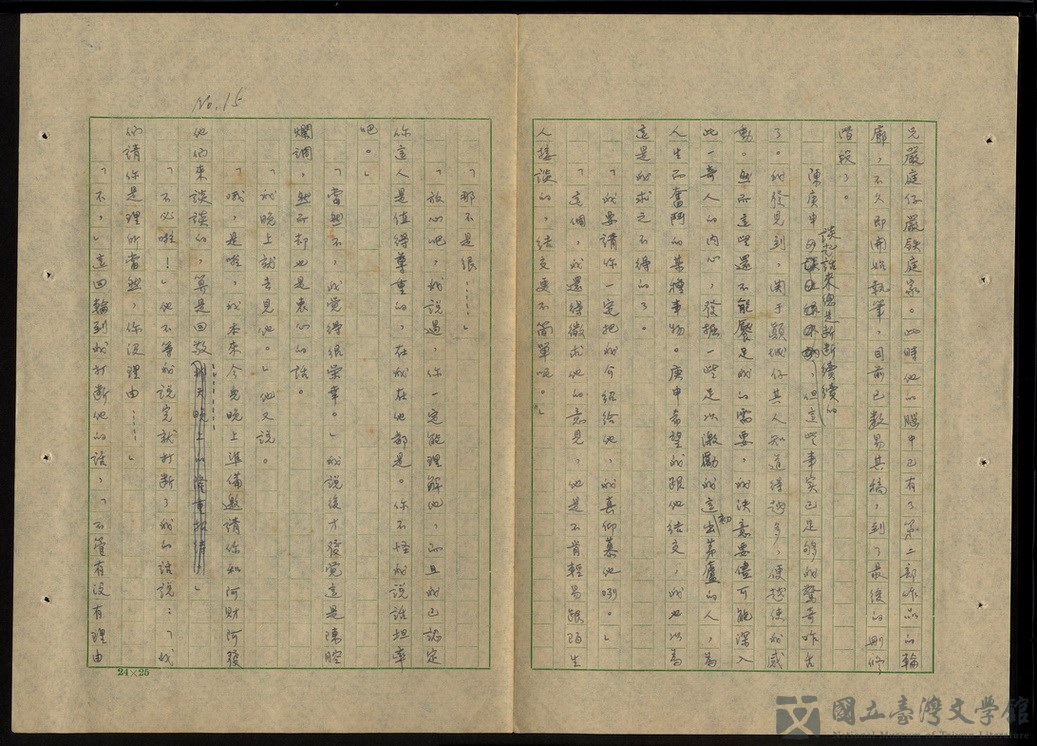 元嚴庭仔嚴鉄庭家。此時他的腦中已有了第二部作品的輪
廓，不久即開始執筆，目前已數易其稿，到了最後的刪修
階段了。
陳庚申談起話來總是斷斷續續的，但這些事实已足够的驚奇咋舌
了。我發見到，関于顯仔其人知道得越多，便越使我感
動。然而這些還不能饜足我的需要，我決意要儘可能深入
此一奇人的内心，發掘一些足以激勵我這初出茅廬的人，為
人生而奮鬥的某種事物。庚申希望我跟他结交，我也以為
這是我求之不得的了。
「我要請你一定把我介紹給他，我真仰慕他啊。」
「這個，我還得徵求他的意見，他是不肯輕易跟陌生
人接談的，结交更不簡單呢。」
No.15
「那不是很……」
「放心吧，我說過，你一定能理解他，而且我已認定
你這人是值得尊重的，在我在他都是。你不怪我說話坦率
吧。」
「當然不，我覺得很榮幸。」我說後才發覺這是陳腔
爛調，然而却也是衷心的話。
「我晚上就去見他。」他又說。
「哦，是啦，我本來今兒晚上準備邀請你和阿財阿發
他們來談談的，算是回敬……」
「不必啦！」他不等我說完就打断了我的話說：「我
们請你是理所當然，你没理由……」
「不，」這回輪到我打断他的話，「不管有没有理由
24×25
國立臺灣文學館
National Museum of Taiwan Literature